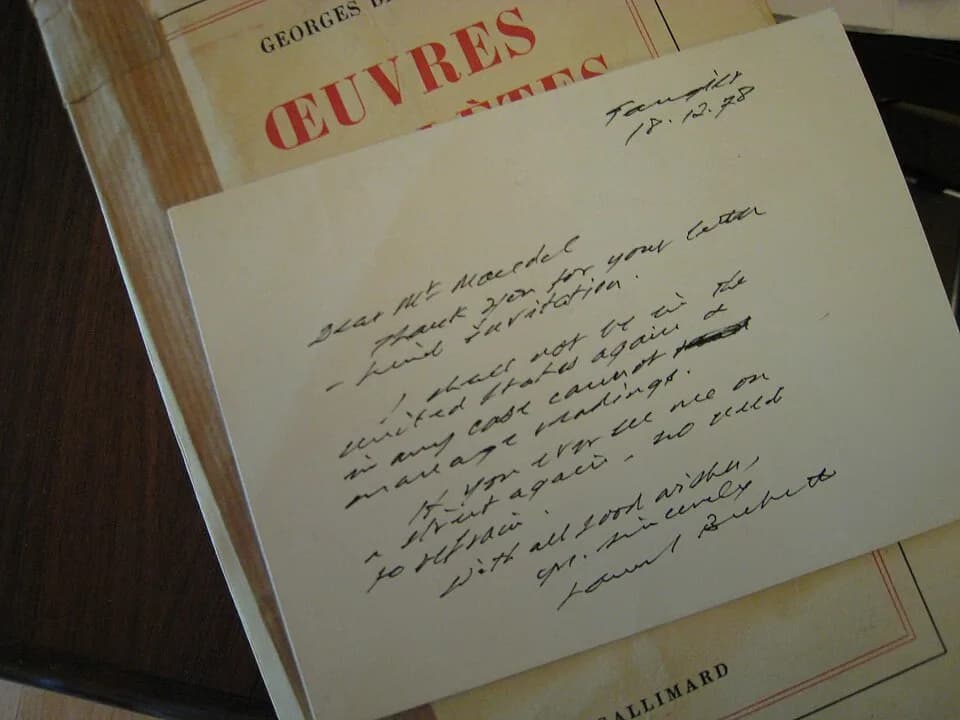 GEORGES
ŒUVRES
Tangier
18.12.78
Dear Mr Mandel
Thank you for your letter
& kind invitation.
I shall not be in the
United States again &
in any case cannot
manage readings.
If you ever see me on
a street again, no need
to refrain.
With all good wishes,
yrs. sincerely
Samuel Beckett
GALLIMARD